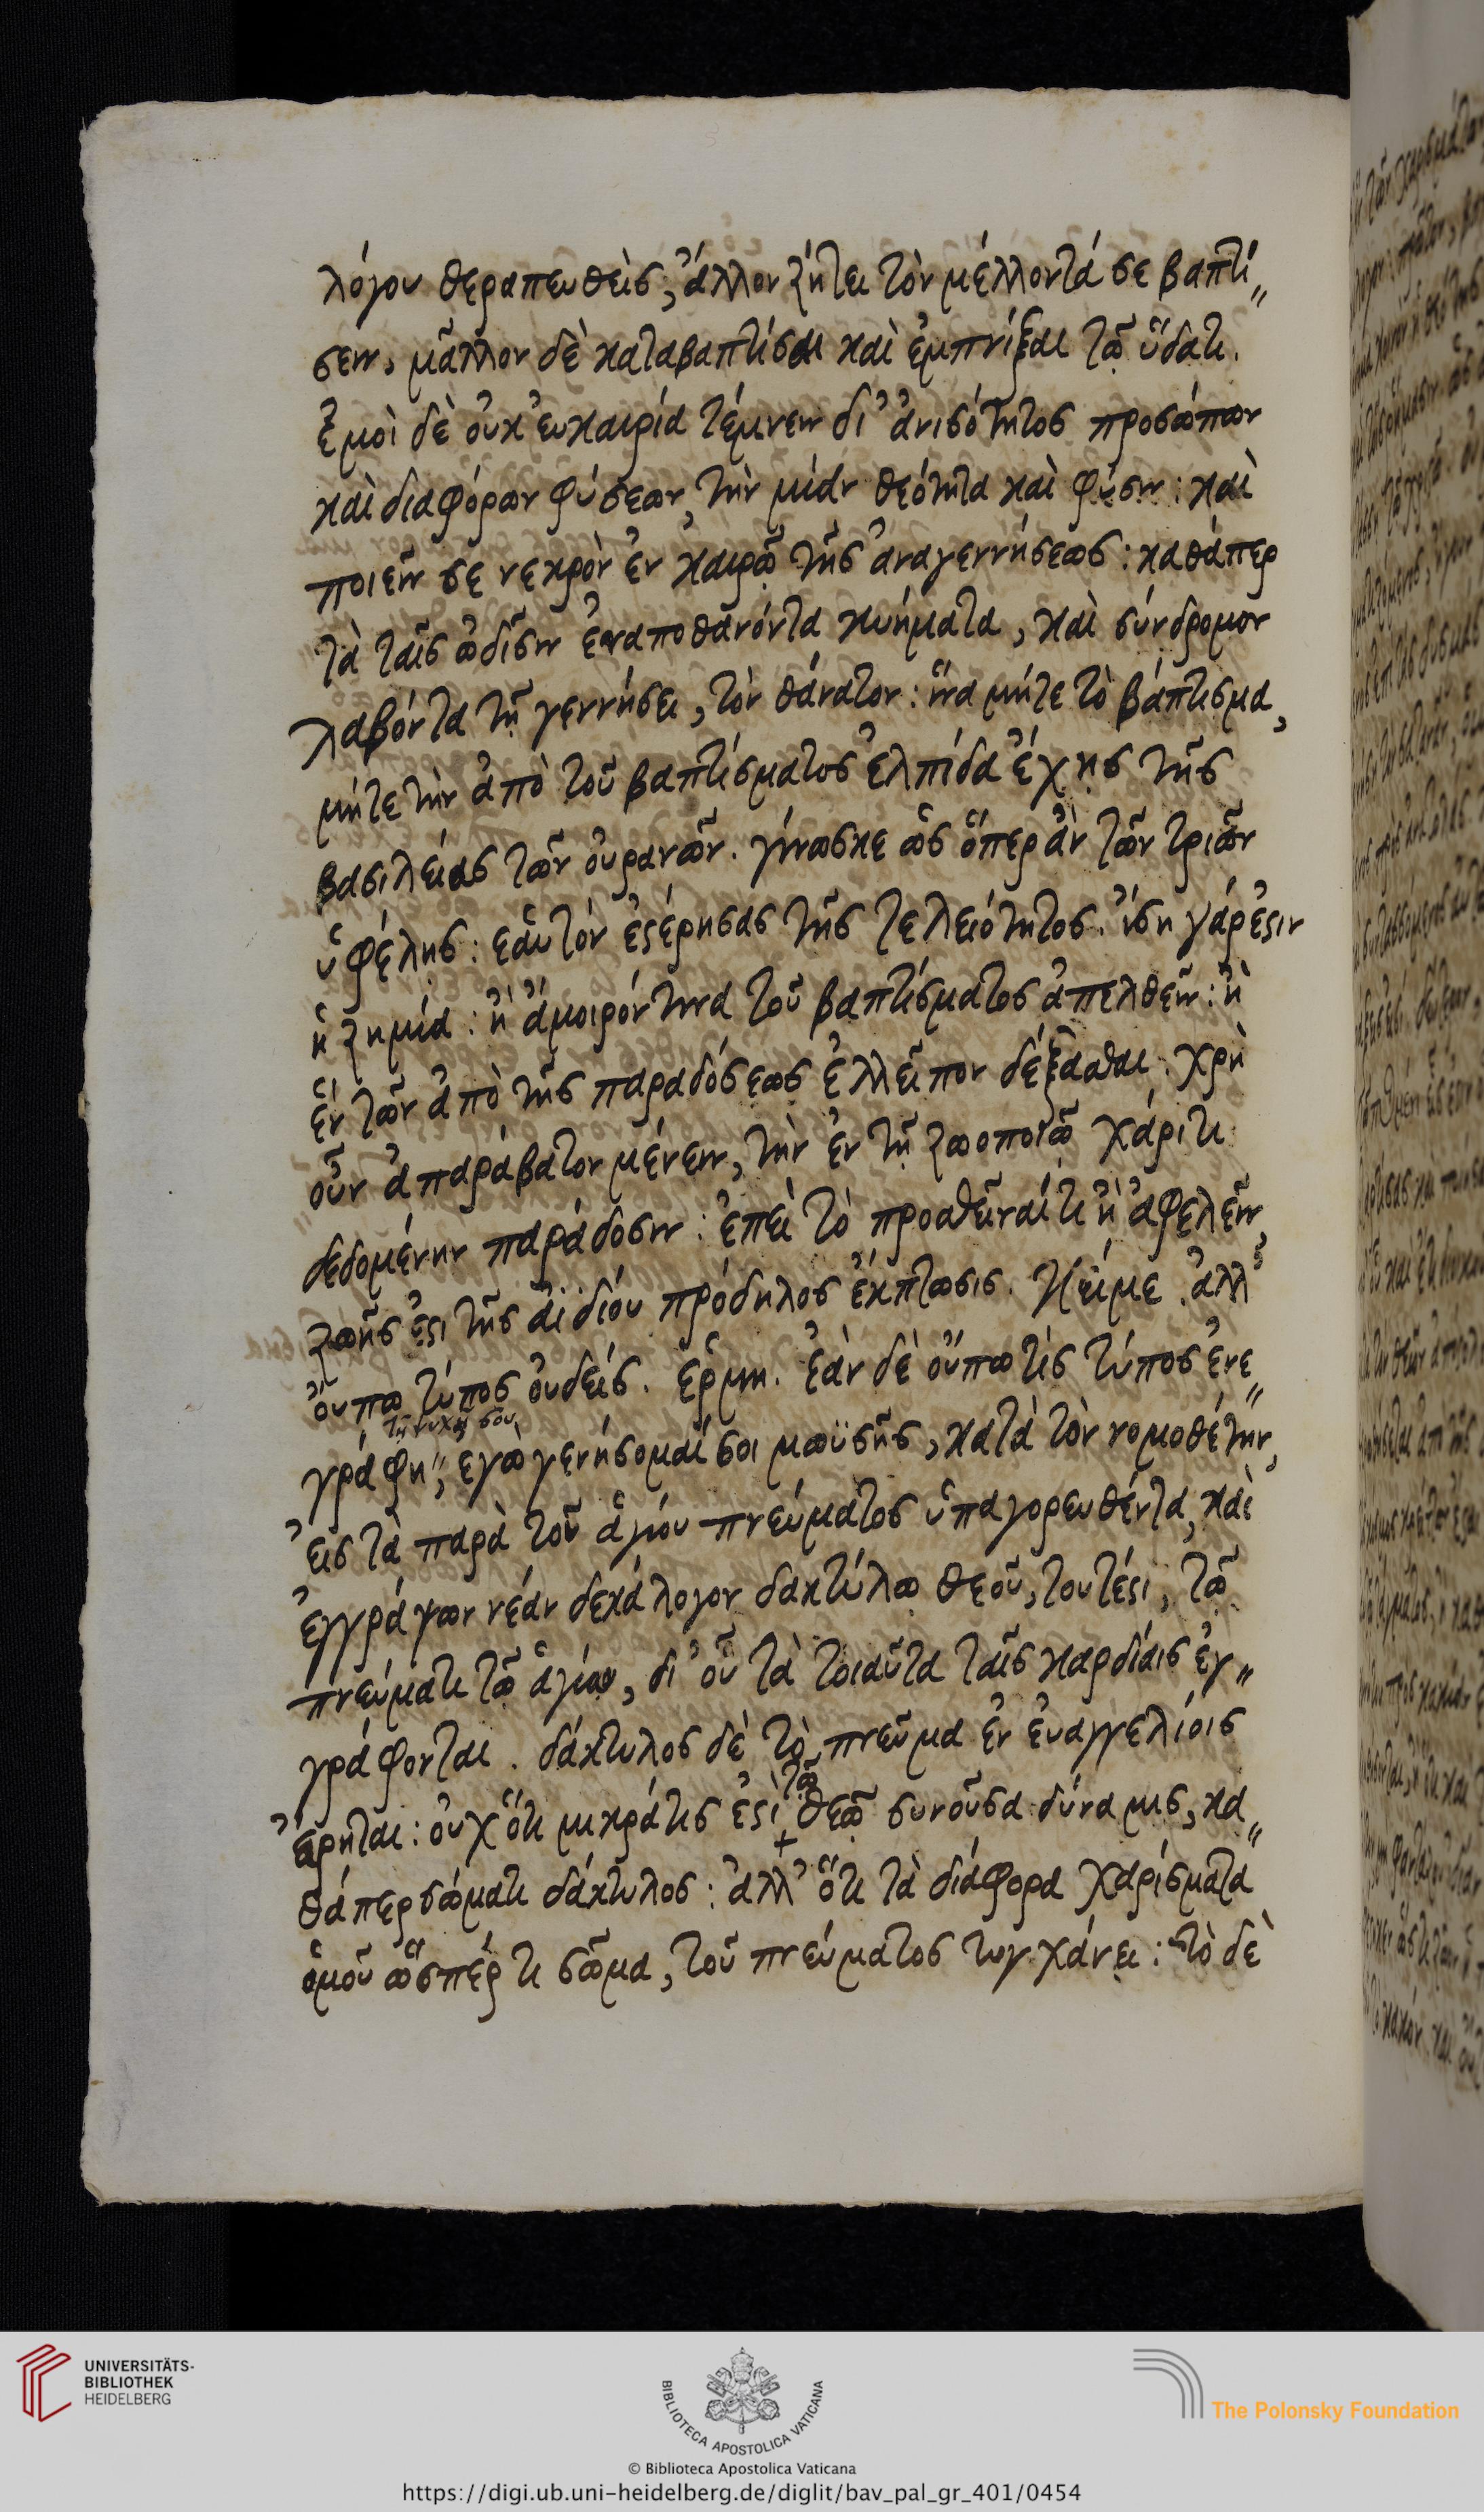 λόγου θεραπευθεὶς, ἄλλον ζήτει τὸν μέλλοντά σε βαπτί〃
σειν, μᾶλλον δὲ καταβαπτίσαι καὶ ἐμπνίξαι τῷ ὕδατι.
Ἐμοὶ δὲ οὐκ εὐκαιρία τέμνειν δι' ἀνισότητος προσώπων
καὶ διαφόρων φύσεων, τὴν μίαν θεότητα καὶ φύσιν: καὶ
ποιεῖν σε νεκρὸν ἐν καιρῷ τῆς ἀναγεννήσεως: καθάπερ
τὰ ταῖς ὠδῖσιν ἐναποθανόντα κυήματα, καὶ σύνδρομον
λαβόντα τῇ γεννήσει, τὸν θάνατον: ἵνα μήτε τὸ βάπτισμα,
μήτε τὴν ἀπὸ τοῦ βαπτίσματος ἐλπίδα ἔχῃς τῆς
βασιλείας τῶν οὐρανῶν. γίνωσκε ὡς ὅπερ ἂν τῶν τριῶν
ὑφέλῃς: ἑαυτὸν ἐστέρησας τῆς τελειότητος. ἴση γάρ ἐστιν
ἡ ζημία: ἢ ἄμοιρόν τινα τοῦ βαπτίσματος ἀπελθεῖν: ἢ
ἓν τῶν ἀπὸ τῆς παραδόσεως ἐλλεῖπον δέξασθαι. χρὴ
οὖν ἀπαράβατον μένειν, τὴν ἐν τῇ ζωοποιῷ χάριτι
δεδομένην παράδοσιν: ἐπεὶ τὸ προσθεῖναί τι ἢ ἀφελεῖν,
ζωῆς ἐστι τῆς ἀϊδίου πρόδηλος ἔκπτωσις. Κείμε. ἀλλ'
οὔπω τύπος οὐδείς. ἑρμη. ἐὰν δὲ οὔπω τὶς τύπος ἐνε〃
τῇ ψυχῇ σου
γράφη〃, ἐγὼ γενήσομαί σοι μωϋσῆς, κατὰ τὸν νομοθέτην,
εἰς τὰ παρὰ τοῦ ἁγίου πνεύματος ὑπαγορευθέντα, καὶ
ἐγγράψων νέαν δεκάλογον δακτύλῳ θεοῦ, τουτέστι, τῷ
πνεύματι τῷ ἁγίῳ, δι' οὗ τὰ τοιαῦτα ταῖς καρδίαις ἐγ〃
γράφονται. δάκτυλος δὲ τὸ πνεῦμα ἐν εὐαγγελίοις
τῷ
εἴρηται: οὐχ ὅτι μικρά τις ἐστὶ θεῷ συνοῦσα δύναμις, κα〃
θάπερ σώματι δάκτυλος: ἀλλ' ὅτι τὰ διάφορα χαρίσματα
ὁμοῦ ὥσπέρ τι σῶμα, τοῦ πνεύματος τυγχάνει: τὸ δὲ
UNIVERSITÄTS-
BIBLIOTHEK
HEIDELBERG
BIBLIOTECA APOSTOLICA VATICANA
© Biblioteca Apostolica Vaticana
The Polonsky Foundation
https://digi.ub.uni-heidelberg.de/diglit/bav_pal_gr_401/0454